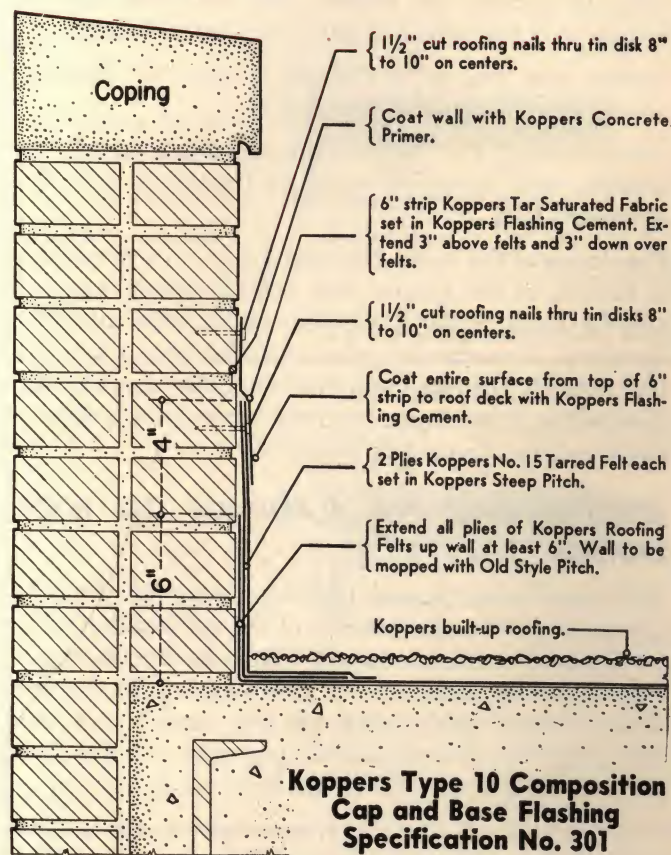 Coping
1½" cut roofing nails thru tin disk 8"
to 10" on centers.
Coat wall with Koppers Concrete
Primer.
6" strip Koppers Tar Saturated Fabric
set in Koppers Flashing Cement. Ex-
tend 3" above felts and 3" down over
felts.
1½" cut roofing nails thru tin disks 8"
to 10" on centers.
Coat entire surface from top of 6"
strip to roof deck with Koppers Flash-
ing Cement.
2 Plies Koppers No. 15 Tarred Felt each
set in Koppers Steep Pitch.
Extend all plies of Koppers Roofing
Felts up wall at least 6". Wall to be
mopped with Old Style Pitch.
Koppers built-up roofing.
4"
6"
Koppers Type 10 Composition
Cap and Base Flashing
Specification No. 301